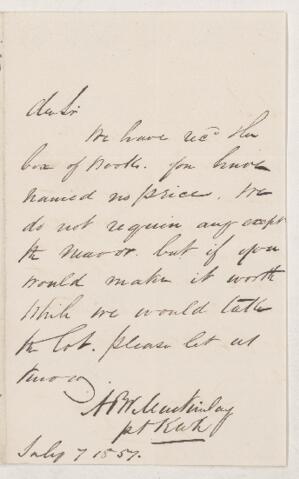 Dr Sir
We have recd the
box of Books. you have
named no price. We
do not require any except
the
but if you
would make it worth
while we would take
the lot. please let us
know
pt
July 7 1857.